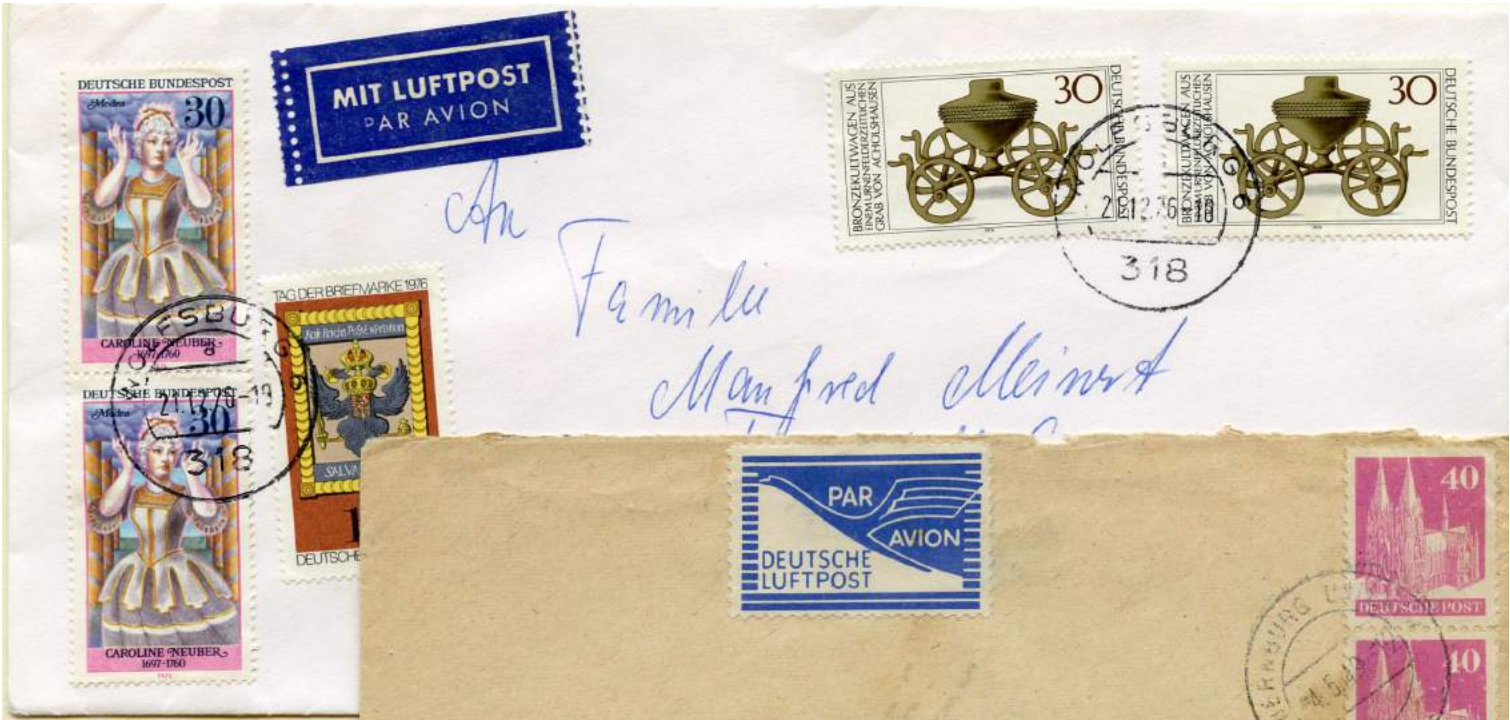 DEUTSCHE BUNDESPOST
Medea
30
CAROLINE NEUBER
1697-1760
DEUTSCHE BUNDESPOST
Medea
30
CAROLINE NEUBER
1697-1760
MIT LUFTPOST
PAR AVION
TAG DER BRIEFMARKE 1976
SALVA
DEUTSCHE
WOLFSBURG
318
BRONZEKULTWAGEN AUS
EINEM URNENFELDERZEITLICHEN
GRAB VON ACHOLSHAUSEN
30
DEUTSCHE BUNDESPOST
BRONZEKULTWAGEN AUS
EINEM URNENFELDERZEITLICHEN
GRAB VON ACHOLSHAUSEN
30
DEUTSCHE BUNDESPOST
WOLFSBURG
318
An
Familie
Manfred Meinert
PAR
AVION
DEUTSCHE
LUFTPOST
40
DEUTSCHE POST
40